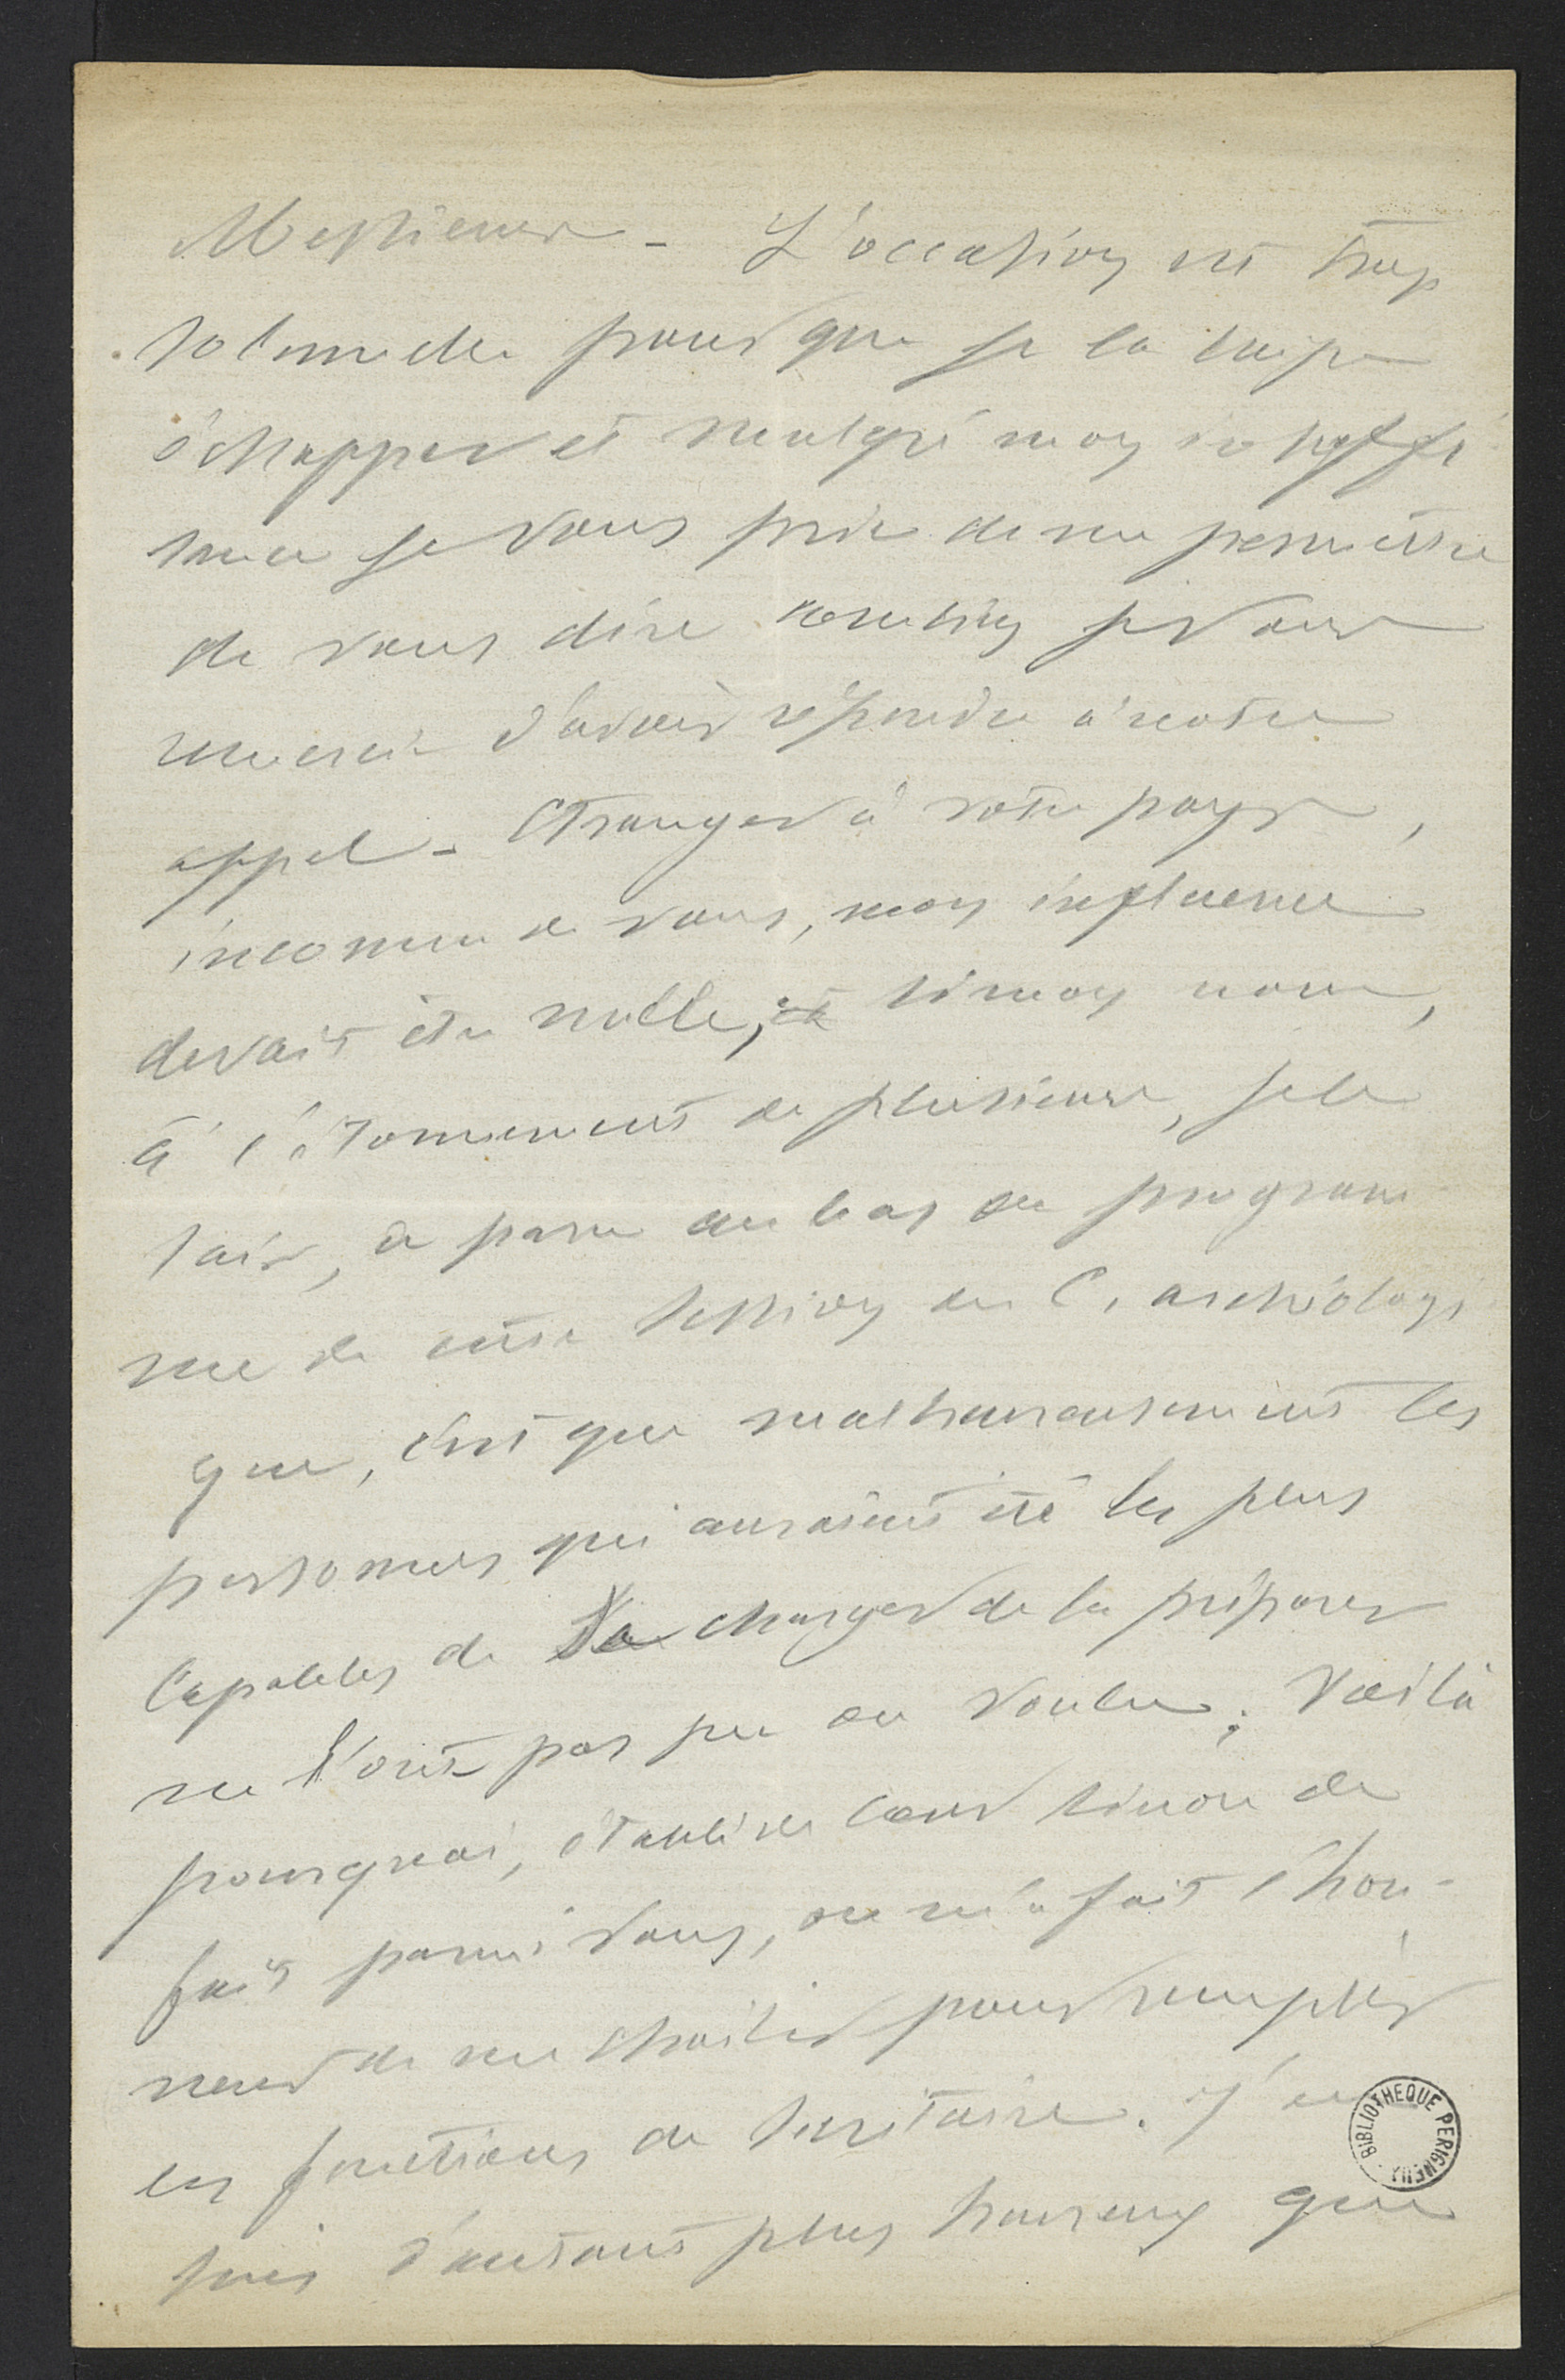 Messieurs - L'occasion est trop
solennelle pour que je la laisse
échapper et malgré mon insuffi
sance je vous prie de me permettre
de vous dire combien je vous
remercie d'avoir répondu à notre
appel - Etranger à votre pays,
inconnu de vous, mon influence
devait être nulle, et si mon nom,
à l'étonnement de plusieurs, je le
sais, a paru au bas du program
me de cette session du C. archéologi
que, c'est que malheureusement les
personnes qui auraient été les plus
capables de se charger de la préparer
ne l'ont pas pu ou voulu ; Voilà
pourquoi, établi de coeur sinon de
fait parmi vous, on m'a fait l'hon-
neur de me choisir pour remplir
les fonctions de secrétaire. J'en
suis d'autant plus heureux que
BIBLIOTHEQUE PERIGUEUX